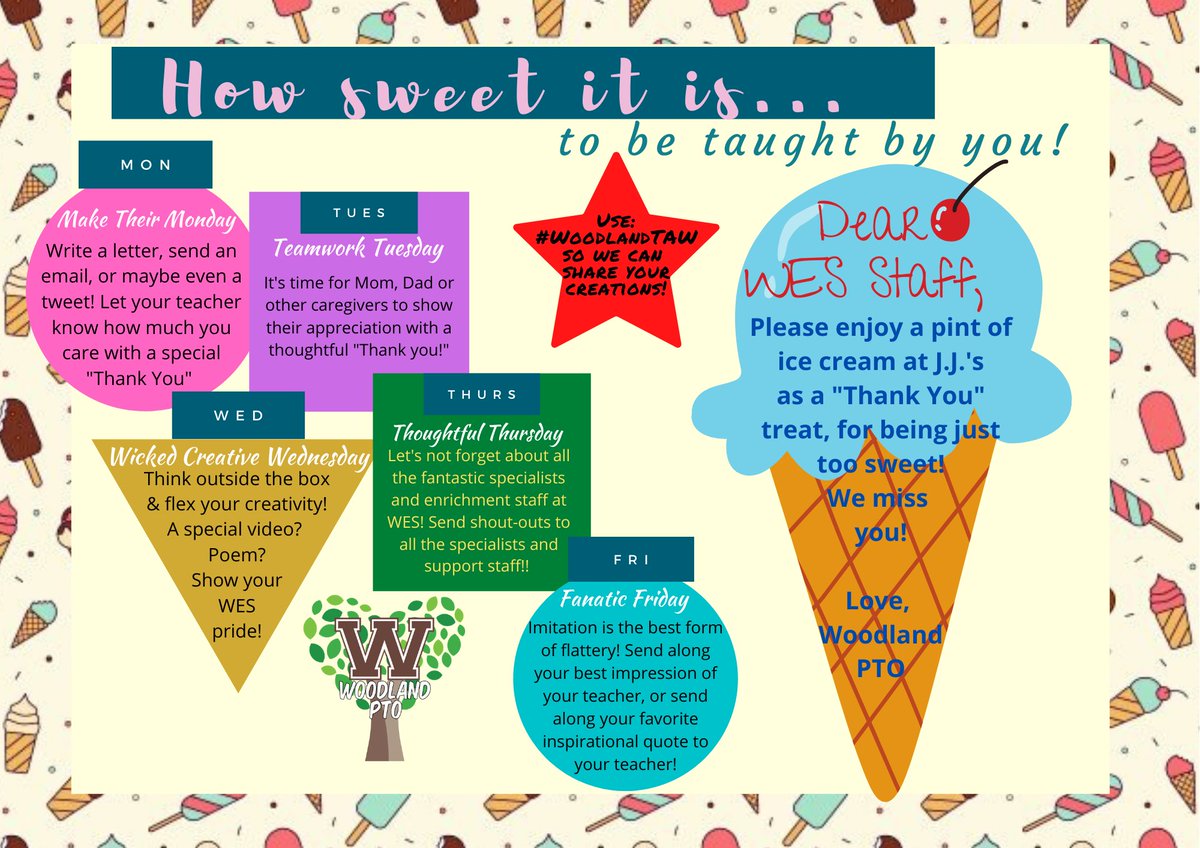 How sweet it is...
to be taught by you!
MON
Make Their Monday
Write a letter, send an
email, or maybe even a
tweet! Let your teacher
know how much you
care with a special
"Thank You"
TUES
Teamwork Tuesday
It's time for Mom, Dad or
other caregivers to show
their appreciation with a
thoughtful "Thank you!"
WED
Wicked Creative Wednesday
Think outside the box
& flex your creativity!
A special video?
Poem?
Show your
WES
pride!
THURS
Thoughtful Thursday
Let's not forget about all
the fantastic specialists
and enrichment staff at
WES! Send shout-outs to
all the specialists and
support staff!!
FRI
Fanatic Friday
Imitation is the best form
of flattery! Send along
your best impression of
your teacher, or send
along your favorite
inspirational quote to
your teacher!
W
WOODLAND
PTO
Use:
#WoodlandTAW
so we can
share your
creations!
Dear
WES Staff,
Please enjoy a pint of
ice cream at J.J.'s
as a "Thank You"
treat, for being just
too sweet!
We miss
you!
Love,
Woodland
PTO